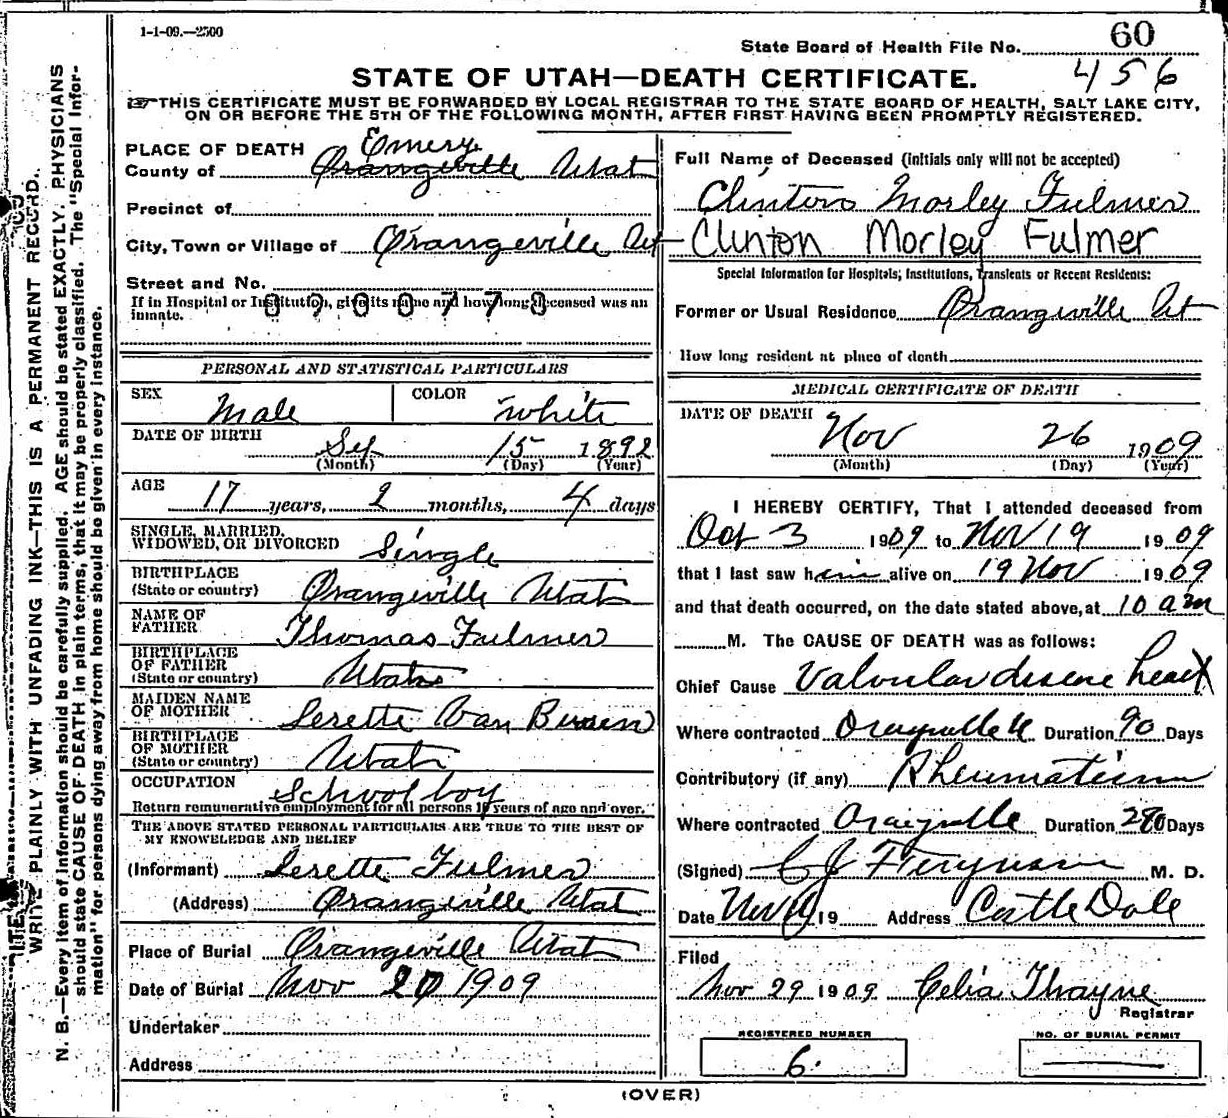 1-1-09.—2500
State Board of Health File No. 60
456
STATE OF UTAH—DEATH CERTIFICATE.
THIS CERTIFICATE MUST BE FORWARDED BY LOCAL REGISTRAR TO THE STATE BOARD OF HEALTH, SALT LAKE CITY,
ON OR BEFORE THE 5TH OF THE FOLLOWING MONTH, AFTER FIRST HAVING BEEN PROMPTLY REGISTERED.
WRITE PLAINLY WITH UNFADING INK—THIS IS A PERMANENT RECORD.
N. B.—Every item of information should be carefully supplied. AGE should be stated EXACTLY. PHYSICIANS
should state CAUSE OF DEATH in plain terms, that it may be properly classified. The "Special Infor-
mation" for persons dying away from home should be given in every instance.
PLACE OF DEATH Emery
County of Orangeville Utah
Precinct of
City, Town or Village of Orangeville Ut
Street and No.
If in Hospital or Institution, give its name and how long deceased was an
inmate.
PERSONAL AND STATISTICAL PARTICULARS
SEX Male COLOR white
DATE OF BIRTH Sep 15 1892
(Month) (Day) (Year)
AGE 17 years, 2 months, 4 days
SINGLE, MARRIED,
WIDOWED, OR DIVORCED Single
BIRTHPLACE
(State or country) Orangeville Utah
NAME OF
FATHER Thomas Fulmer
BIRTHPLACE
OF FATHER
(State or country) Utah
MAIDEN NAME
OF MOTHER Lerette Van Buren
BIRTHPLACE
OF MOTHER
(State or country) Utah
OCCUPATION School boy
Return remunerative employment for all persons 10 years of age and over."
THE ABOVE STATED PERSONAL PARTICULARS ARE TRUE TO THE BEST OF
MY KNOWELEDGE AND BELIEF
(Informant) Lerette Fulmer
(Address) Orangeville Utah
Place of Burial Orangeville Utah
Date of Burial Nov 20 1909
Undertaker
Address
Full Name of Deceased (Initials only will not be accepted)
Clinton Morley Fulmer
Clinton Morley Fulmer
Special Information for Hospitals, Institutions, Transients or Recent Residents:
Former or Usual Residence Orangeville Ut
How long resident at place of death
MEDICAL CERTIFICATE OF DEATH
DATE OF DEATH Nov 26 1909
(Month) (Day) (Year)
I HEREBY CERTIFY, That I attended deceased from
Oct 3 1909 to Nov 19 1909
that I last saw him alive on 19 Nov 1909
and that death occurred, on the date stated above, at 10 am
M. The CAUSE OF DEATH was as follows:
Chief Cause Valvular disease heart
Where contracted Orangeville U Duration 90 Days
Contributory (if any) Rheumatism
Where contracted Orangeville Duration Days
(Signed) C J Ferguson M. D.
Date Nov 19 Address Castle Dale
Filed
Nov 29 1909 Celia Thayne
Registrar
REGISTERED NUMBER
6.
NO. OF BURIAL PERMIT
(OVER)